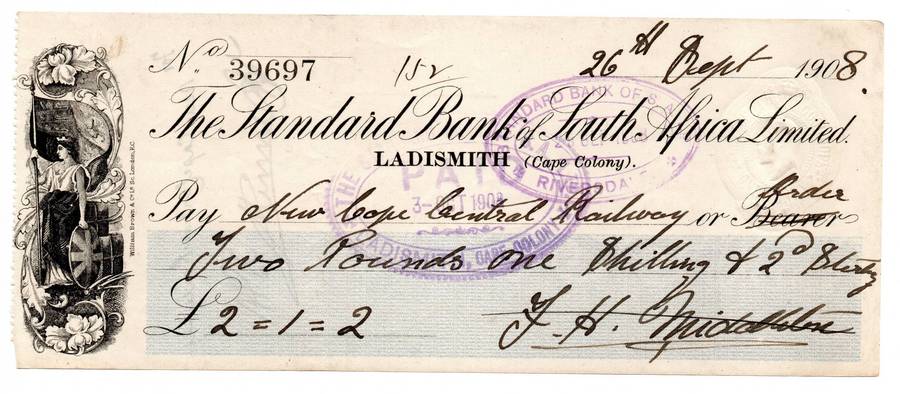 No. 39697
152
26th Sept 1908.
The Standard Bank of South Africa Limited.
LADISMITH (Cape Colony).
Pay New Cape Central Railway or Bearer
Order
Two Pounds one Shilling & 2d
£ 2 = 1 = 2
F. H. Middleton
William Brown & Co Ld. London, E.C.
STANDARD BANK OF S.
RIVERSDALE
THE
PAID
3-OCT 1908
LADISMITH, CAPE COLONY